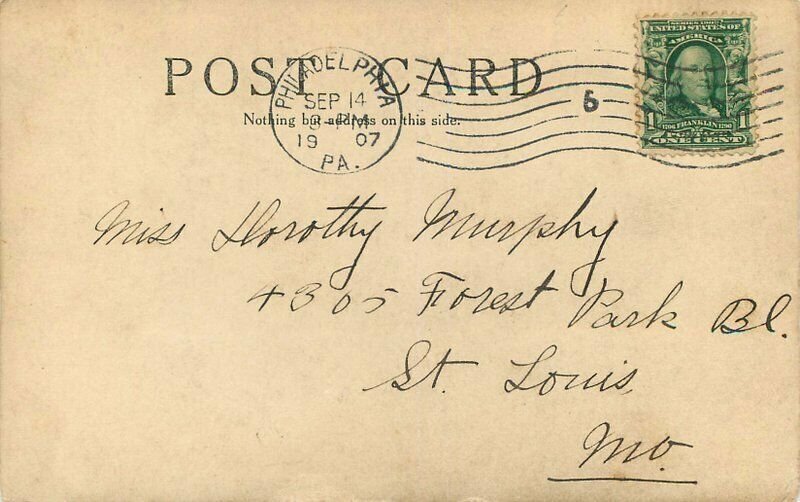 POST CARD
Nothing but address on this side.
PHILADELPHIA
SEP 14
PM
1907
PA.
6
SERIES 1902
UNITED STATES OF
AMERICA
1706 FRANKLIN 1790
1 POSTAGE 1
ONE CENT
Miss Dorothy Murphy
4305 Forest Park Bl.
St. Louis
Mo.